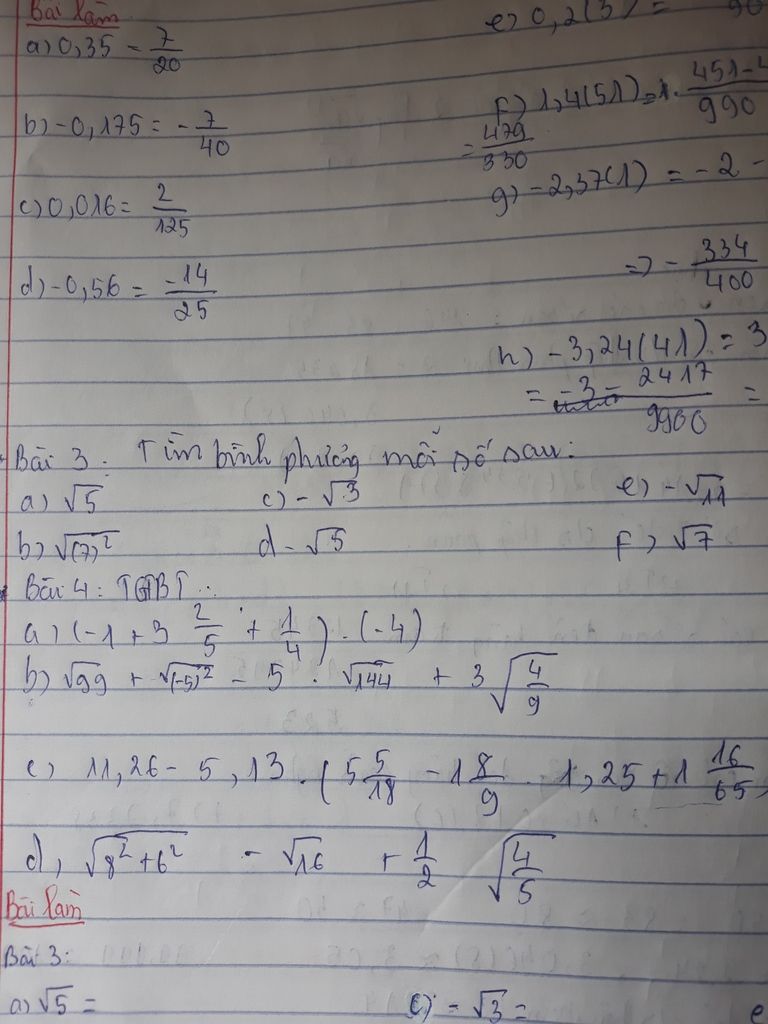 Bài làm
a) 0,35 = 7/20
e) 0,2(3) =
b) -0,175 = -7/40
f) 1,4(51) = 1. 451-4/990
= 479/330
c) 0,016 = 2/125
g) -2,37(1) = -2 -
d) -0,56 = -14/25
=> - 334/400
h) -3,24(41) = 3
= -3 - 2417/9900 =
Bài 3: Tìm bình phương mỗi số sau:
a) √5 c) -√3 e) -√11
b) √(7)² d -√5 f) √7
Bài 4: TGTBT
a) (-1 + 3 2/5 + 1/4) . (-4)
b) √99 + √(-5)² - 5 . √144 + 3 √4/9
c) 11,26 - 5,13 . (5 5/18 - 1 8/9 . 1,25 + 1 16/65
d, √8²+6² - √16 + 1/2 √4/5
Bài làm
Bài 3:
a) √5 = c) -√3 = e